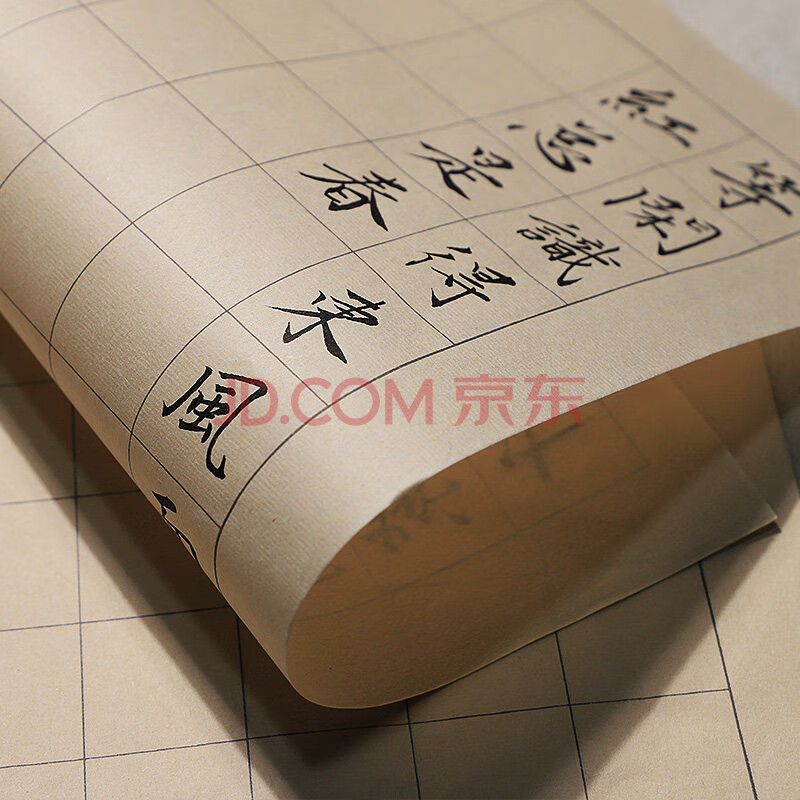 等閑識得東風
紅总是春
JD.COM 京东